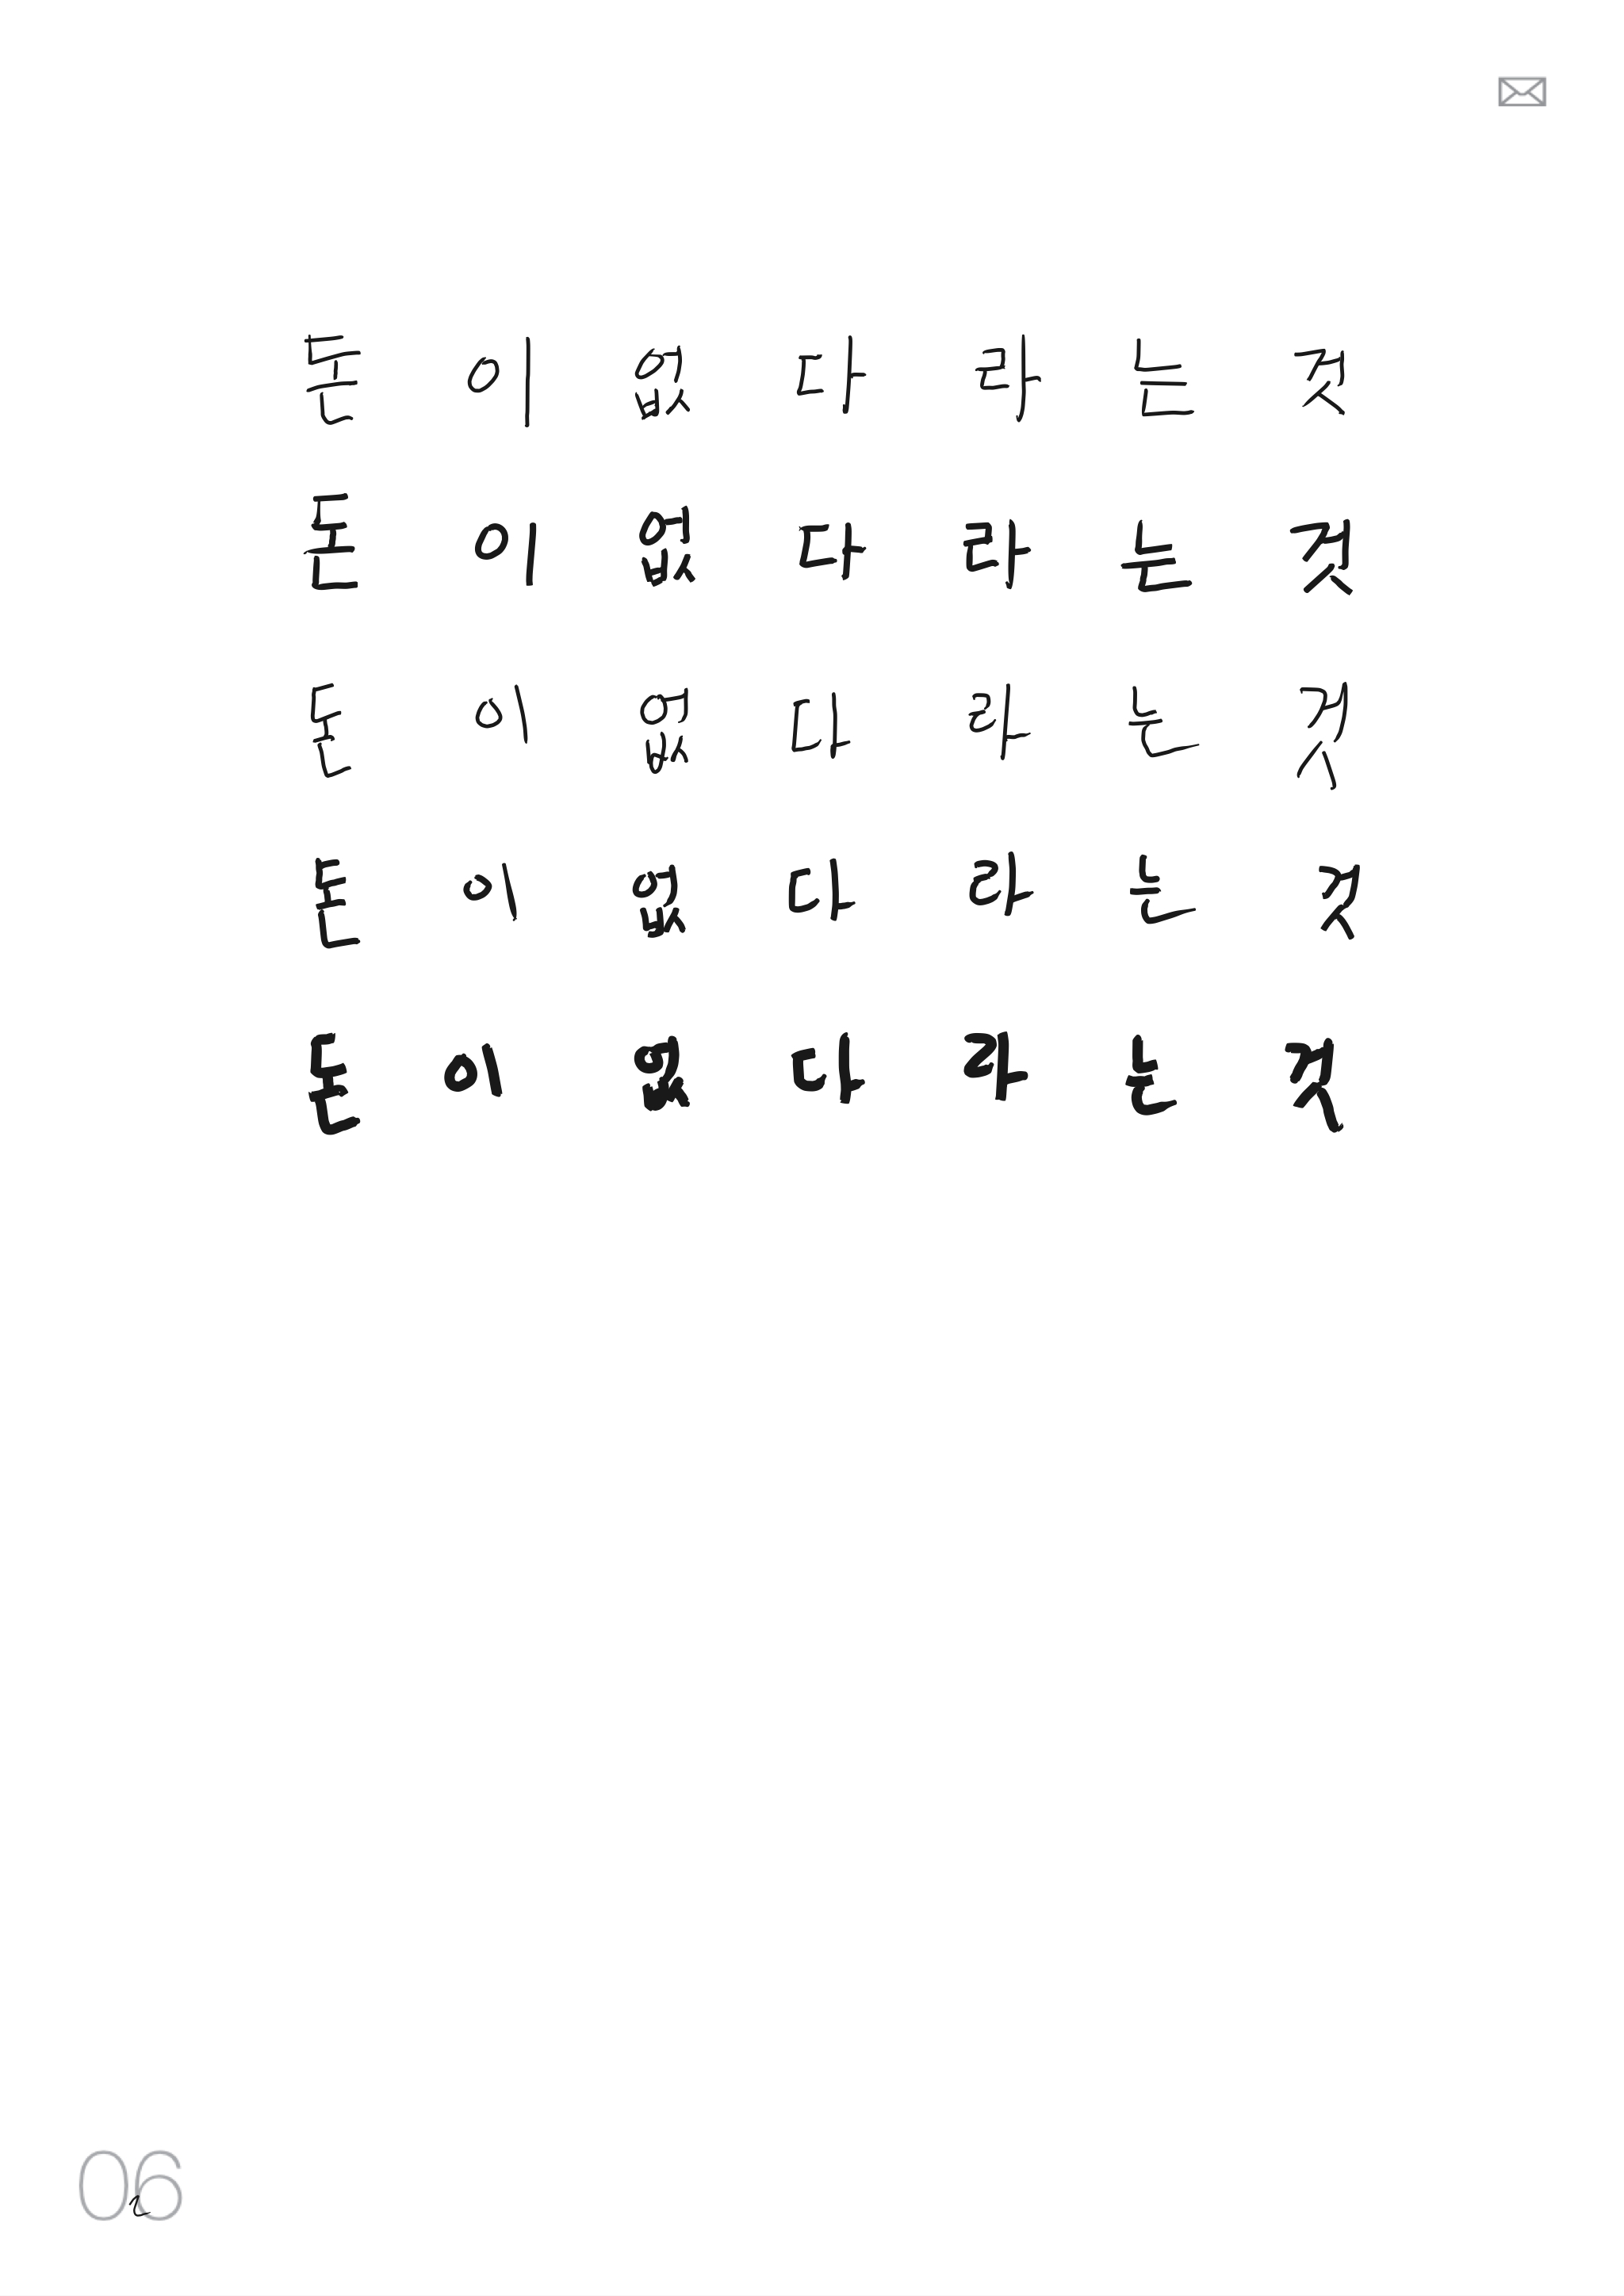 돈 이 없 다 라 는 것
돈 이 없 다 라 는 것
돈 이 없 다 라 는 것
돈 이 없 다 라 는 것
돈 이 없 다 라 는 것
06